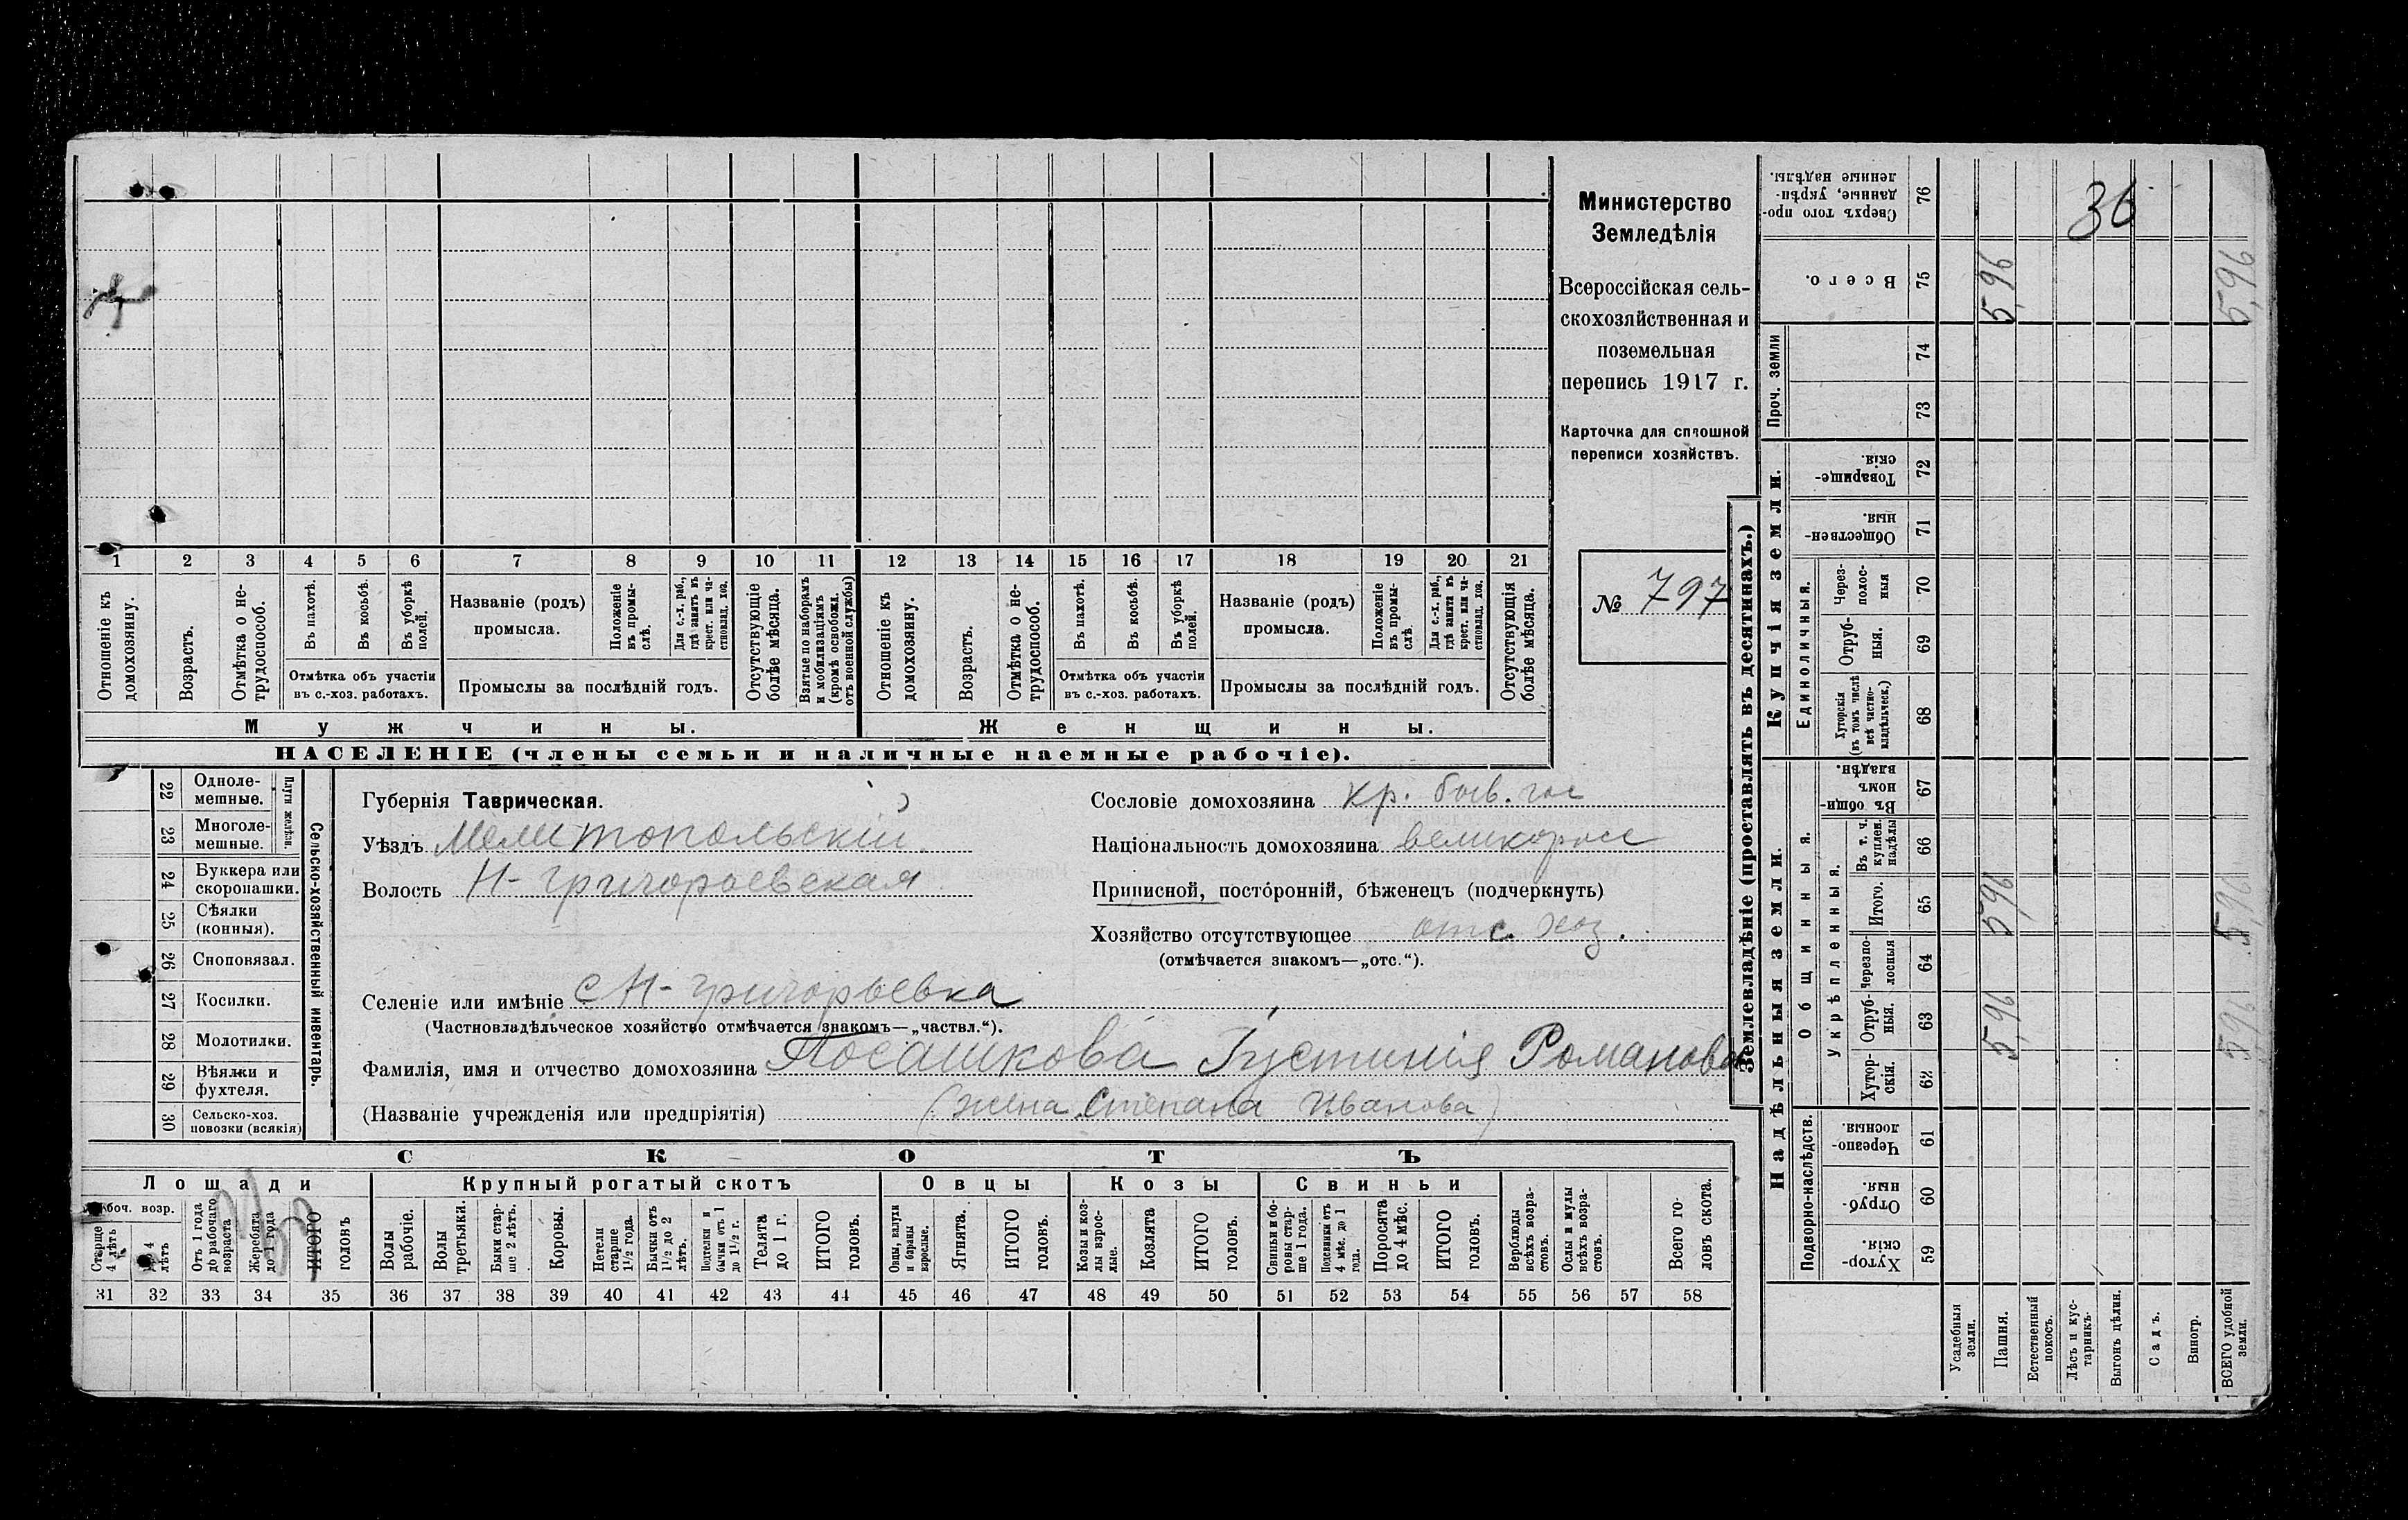 Министерство
Земледѣлія
Всероссійская сель-
скохозяйственная и
поземельная
перепись 1917 г.
Карточка для сплошной
переписи хозяйствъ.
№ 797
1 2 3 4 5 6 7 8 9 10 11 12 13 14 15 16 17 18 19 20 21
Отношеніе къ домохозяину.
Возрастъ.
Отмѣтка о не-трудоспособ.
Въ пахотѣ.
Въ косьбѣ.
Въ уборкѣ полей.
Отмѣтка объ участіи
въ с.-хоз. работахъ.
Названіе (родъ)
промысла.
Положеніе въ промы-слѣ.
Для с.-х. раб., гдѣ занятъ въ крест. или ча-стновлад. хоз.
Промыслы за послѣдній годъ.
Отсутствующіе болѣе мѣсяца.
Взятые по наборамъ и мобилизаціямъ (кромѣ освобожд. отъ военной службы)
Отношеніе къ домохозяину.
Возрастъ.
Отмѣтка о не-трудоспособ.
Въ пахотѣ.
Въ косьбѣ.
Въ уборкѣ полей.
Отмѣтка объ участіи
въ с.-хоз. работахъ.
Названіе (родъ)
промысла.
Положеніе въ промы-слѣ.
Для с.-х. раб., гдѣ занята въ крест. или ча-стновлад. хоз.
Промыслы за послѣдній годъ.
Отсутствующія болѣе мѣсяца.
Мужчины.
Женщины.
НАСЕЛЕНІЕ (члены семьи и наличные наемные рабочіе).
22 Одноле-мешные.
23 Многоле-мешные.
Плуги желѣзн.
24 Буккера или скоропашки.
25 Сѣялки (конныя).
26 Сноповязал.
27 Косилки.
28 Молотилки.
29 Вѣялки и фухтеля.
30 Сельско-хоз. повозки (всякія)
Сельско-хозяйственный инвентарь.
Губернія Таврическая.
Уѣздъ Мелитопольскій.
Волость Н-Григорьевская
Сословіе домохозяина кр. быв. гос
Національность домохозяина великоросс
Приписной, посторонній, бѣженецъ (подчеркнуть)
Хозяйство отсутствующее отс. хоз.
(отмѣчается знакомъ—„отс.“).
Селеніе или имѣніе с Н-Григорьевка
(Частновладѣльческое хозяйство отмѣчается знакомъ—„частвл.“).
Фамилія, имя и отчество домохозяина Посашкова Іустинія Романова
(Названіе учрежденія или предпріятія) (жена Степана Иванова)
СКОТЪ
Лошади
Крупный рогатый скотъ
Овцы
Козы
Свиньи
боч. возр.
Старше 4 лѣтъ
4 лѣтъ
Отъ 1 года до рабочаго возраста
Жеребята до 1 года
ИТОГО головъ
Волы рабочіе.
Волы третьяки.
Быки стар-ше 2 лѣтъ.
Коровы.
Нетели старше 1½ года.
Бычки отъ 1½ до 2 лѣтъ.
Подтелки и бычки отъ 1 до 1½ г.
Телята до 1 г.
ИТОГО головъ.
Овцы, валухи и бараны взрослые.
Ягнята.
ИТОГО головъ.
Козы и коз-лы взрос-лые.
Козлята
ИТОГО головъ.
Свиньи и бо-ровы стар-ше 1 года.
Подсвинки отъ 4 мѣс. до 1 года.
Поросята до 4 мѣс.
ИТОГО головъ.
Верблюды всѣхъ возра-стовъ.
Ослы и мулы всѣхъ возра-стовъ.
Всего го-ловъ скота.
31 32 33 34 35 36 37 38 39 40 41 42 43 44 45 46 47 48 49 50 51 52 53 54 55 56 57 58
Землевладѣніе (проставлять въ десятинахъ.)
Сверхъ того про-данные, укрѣп-ленные надѣлы. 76
36
Всего. 75 5,96 5,96
Проч. земли
74
73
Купчія земли.
Товарище-скія. 72
Обществен-ныя. 71
Единоличныя.
Через-полос-ныя 70
Отруб-ныя. 69
Хуторскія (въ томъ числѣ всѣ частно-владѣльческ.) 68
Надѣльныя земли.
Общинныя.
Въ общи-номъ владѣн. 67
Укрѣпленныя.
Въ т. ч. куплен. надѣлы 66
Итого. 65 5,96 5,96
Черезпо-лосныя 64
Отруб-ныя. 63 5,96 5,96
Хутор-скія. 62
Подворно-наслѣдств.
Черезпо-лосныя. 61
Отруб-ныя. 60
Хутор-скія. 59
Усадебныя земли.
Пашня.
Естественный покосъ.
Лѣсъ и кус-тарникъ.
Выгонъ цѣлин.
Садъ.
Виногр.
ВСЕГО удобной земли.